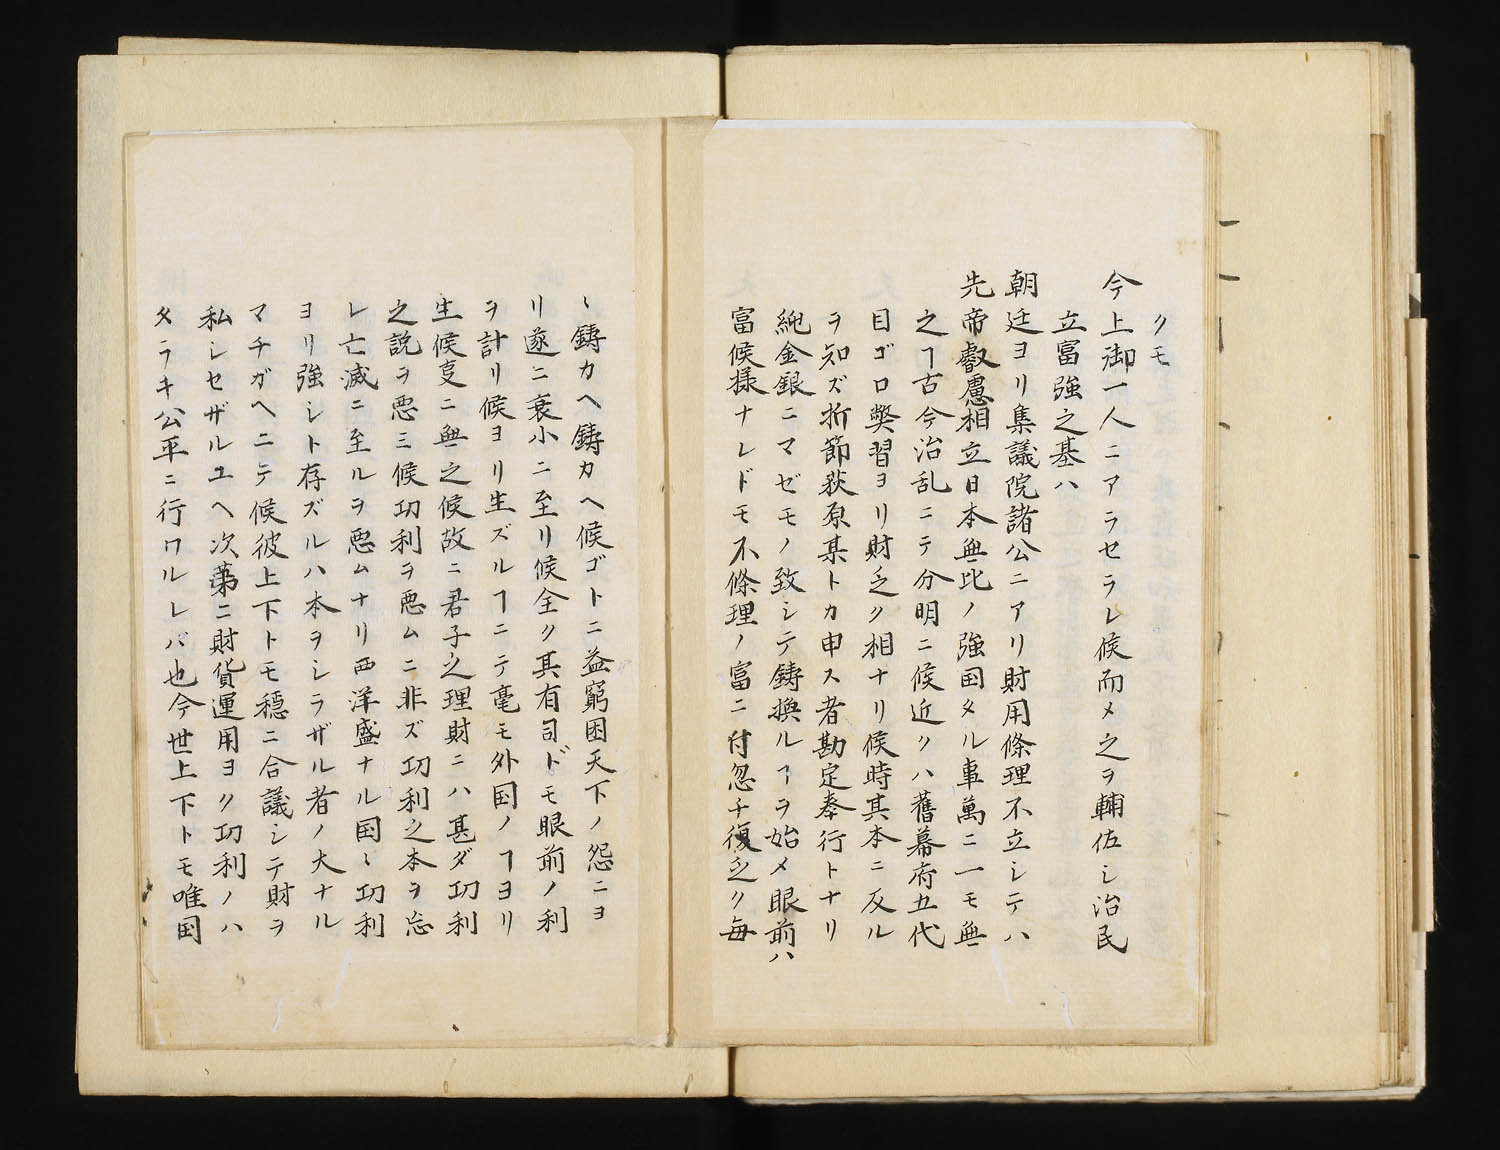 クモ
今上御一人ニアラセラレ候而メ之ヲ輔佐シ治民
立富強之基ハ
朝廷ヨリ集議院諸公ニアリ財用條理不立シテハ
先帝叡慮相立日本無比ノ強国タル事萬ニ一モ無
之ヿ古今治乱ニテ分明ニ候近クハ舊幕府五代
目ゴロ弊習ヨリ財乏ク相ナリ候時其本ニ反ル
ヲ知ズ折節荻原某トカ申ス者勘定奉行トナリ
純金銀ニマゼモノ致シテ鋳換ルヿヲ始メ眼前ハ
富候様ナレドモ不條理ノ富ニ付忽チ復乏ク毎
〻鋳カヘ鋳カヘ候ゴトニ益窮困天下ノ怨ニヨ
リ遂ニ衰小ニ至リ候全ク其有司ドモ眼前ノ利
ヲ計リ候ヨリ生ズルヿニテ毫モ外国ノヿヨリ
生候夏ニ無之候故ニ君子之理財ニハ甚ダ功利
之説ヲ悪ミ候功利ヲ悪ムニ非ズ功利之本ヲ忘
レ亡滅ニ至ルヲ悪ムナリ西洋盛ナル国〻功利
ヨリ強シト存ズルハ本ヲシラザル者ノ大ナル
マチガヘニテ候彼上下トモ穏ニ合議シテ財ヲ
私シセザルユヘ次第ニ財貨運用ヨク功利ノハ
タラキ公平ニ行ワルレバ也今世上下トモ唯国